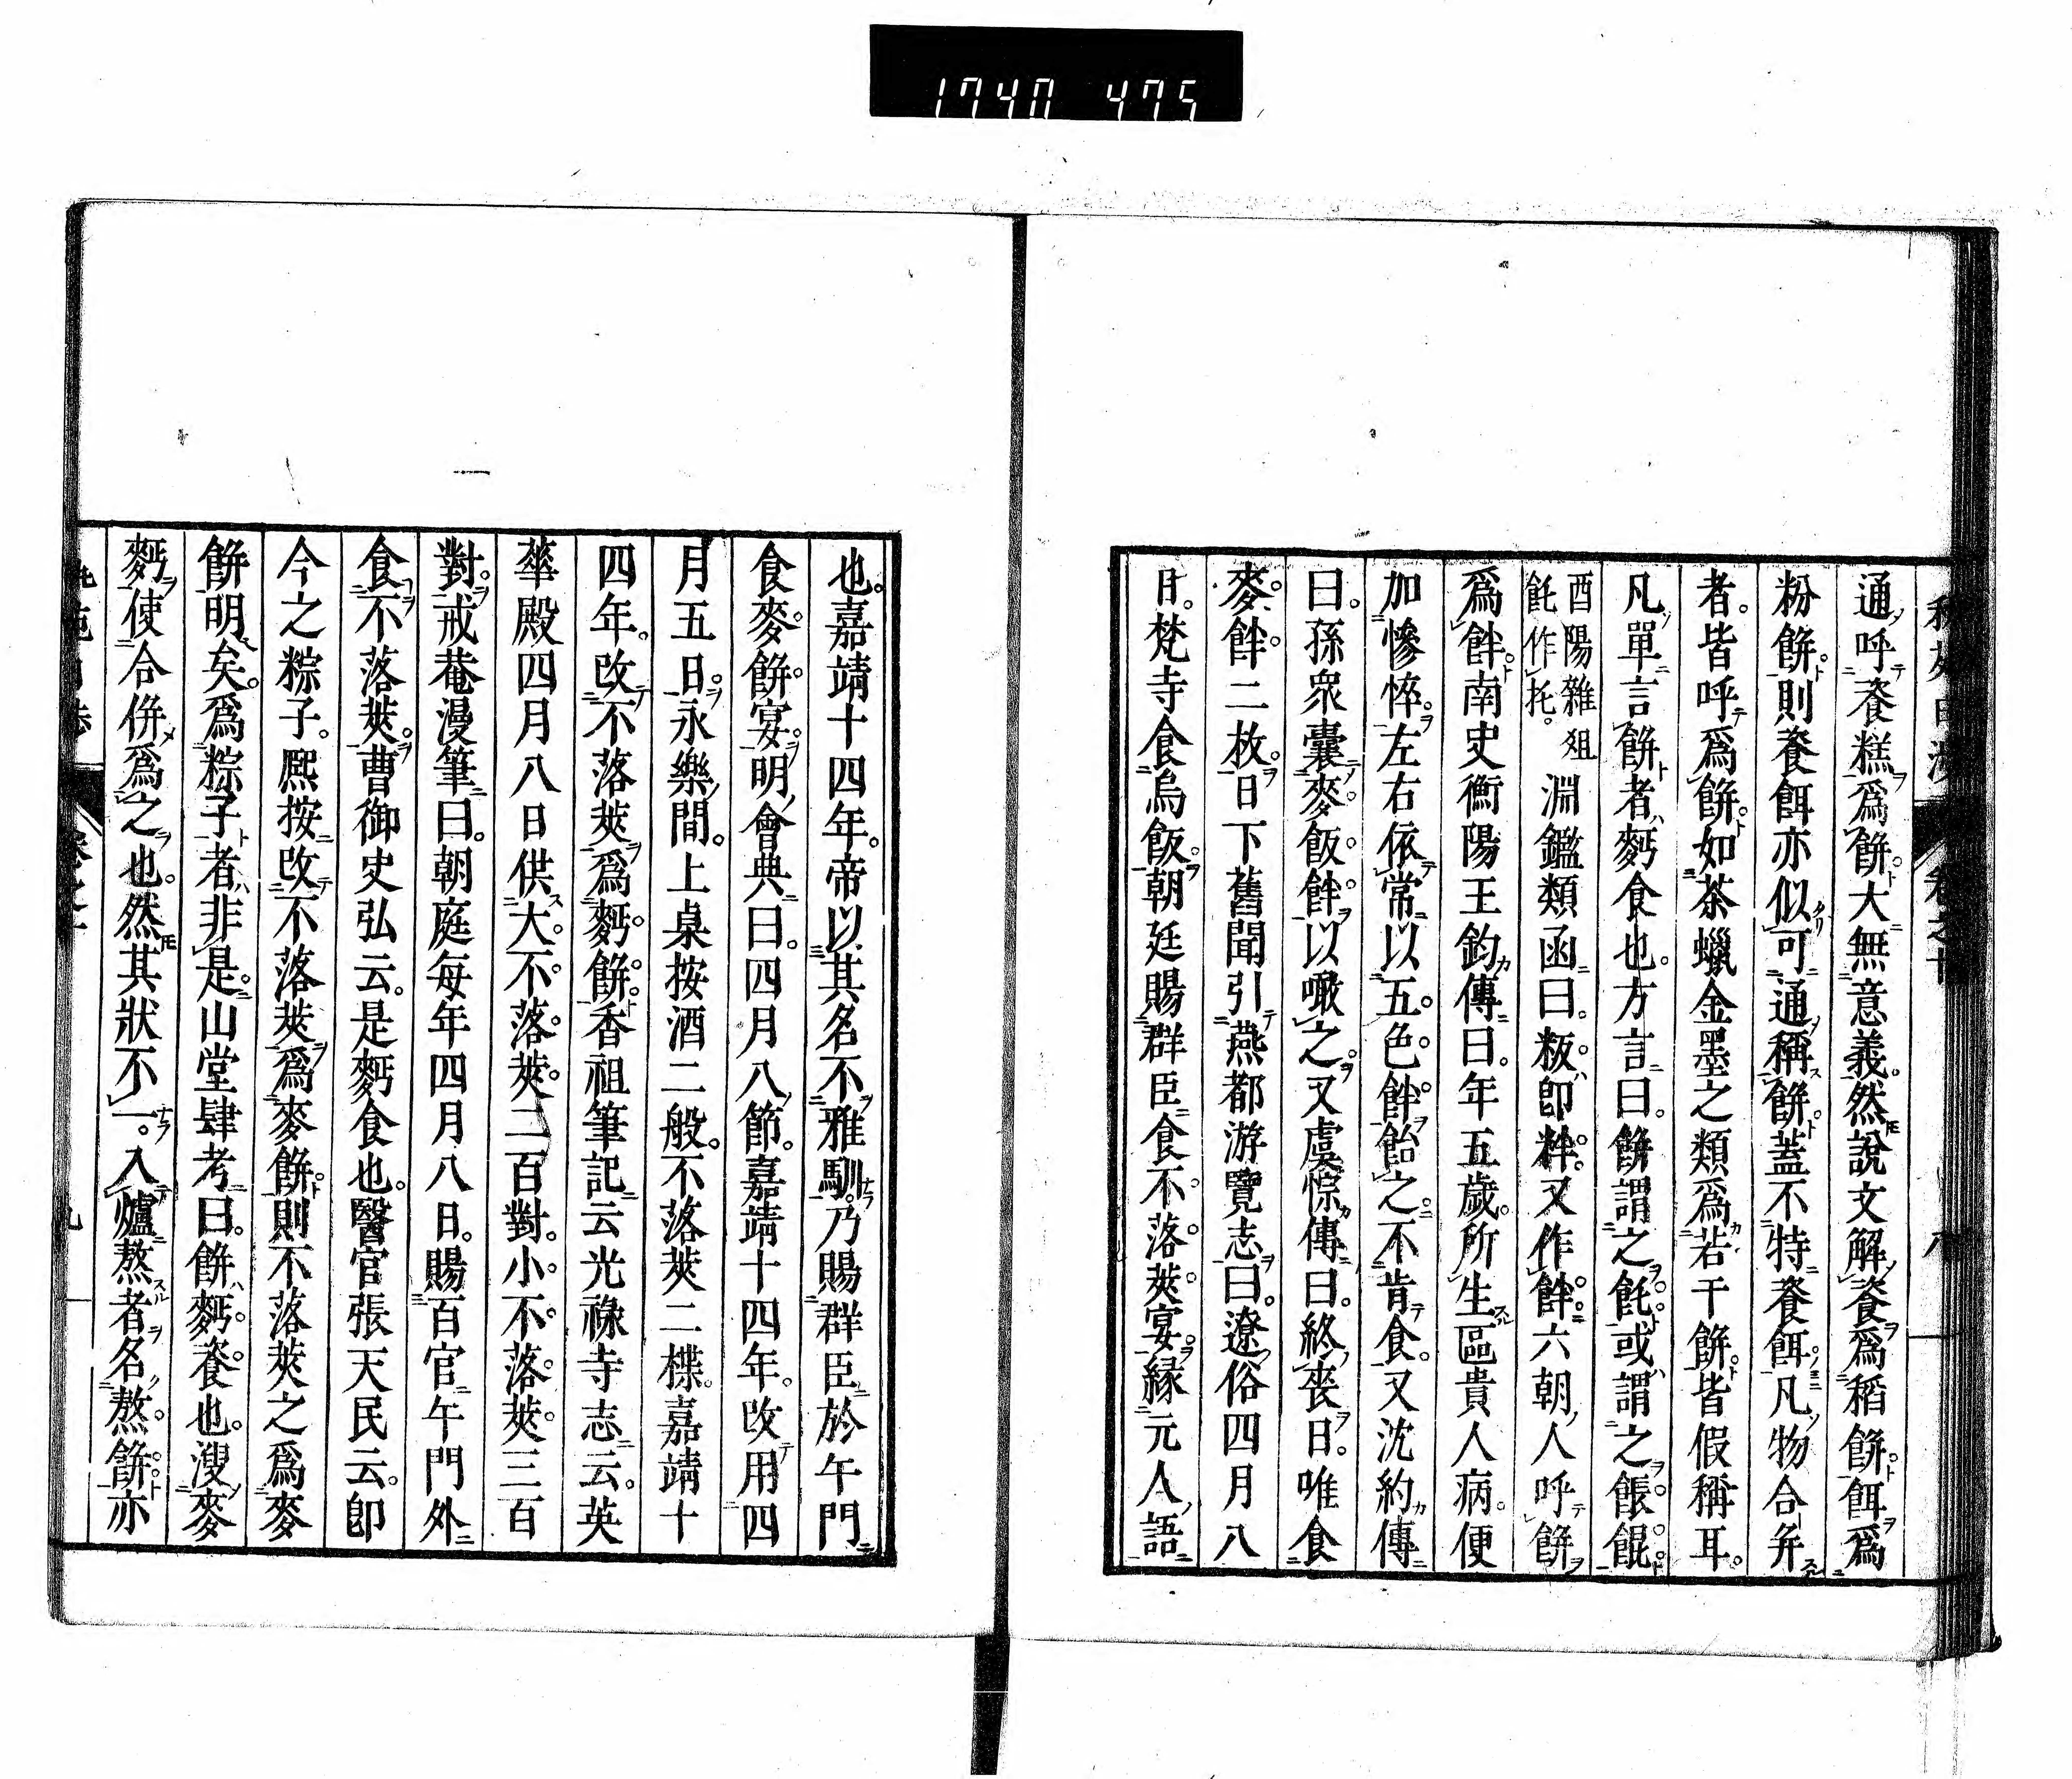 1740 475
通呼餈糕爲餅大無意義然說文解餈爲稻餅餌爲
粉餅則餈餌亦似可通稱餅蓋不特餈餌凡物合并
者。皆呼爲餅如茶蠟金墨之類爲若干餅皆假稱耳。
凡單言餅者麪食也。方言曰。餅謂之飥或謂之餦餛
酉陽雜俎
飥作托。
淵鑑類函曰。粄卽䉽又作䬳六朝人呼餅
爲䬳南史衡陽王鈞傳曰。年五歲所生區貴人病。便
加慘悴。左右依常以五色䬳飴之不肯食。又沈約傳
曰。孫衆囊麥飯䬳以噉之。又虞悰傳曰。終喪日。唯食
麥䬳二枚。日下舊聞引燕都游覽志曰。遼俗四月八
日。梵寺食烏飯。朝廷賜群臣食不落莢宴。緣元人語
也。嘉靖十四年。帝以其名不雅馴。乃賜群臣於午門
食麥餅宴。明會典曰。四月八節。嘉靖十四年。改用四
月五日。永樂間。上桌按酒二般。不落莢二楪。嘉靖十
四年。改不落莢爲麪餅。香祖筆記云光祿寺志云。英
華殿四月八日供大不落莢二百對。小不落莢三百
對。戒菴漫筆曰。朝庭每年四月八日。賜百官午門外
食不落莢。曹御史弘云。是麪食也。醫官張天民云。卽
今之粽子。熙按改不落莢爲麥餅。則不落莢之爲麥
餅明矣。爲粽子者非是。山堂肆考曰。餅麪餈也。溲麥
麪使合倂爲之也。然其狀不一。入爐熬者名熬餅亦